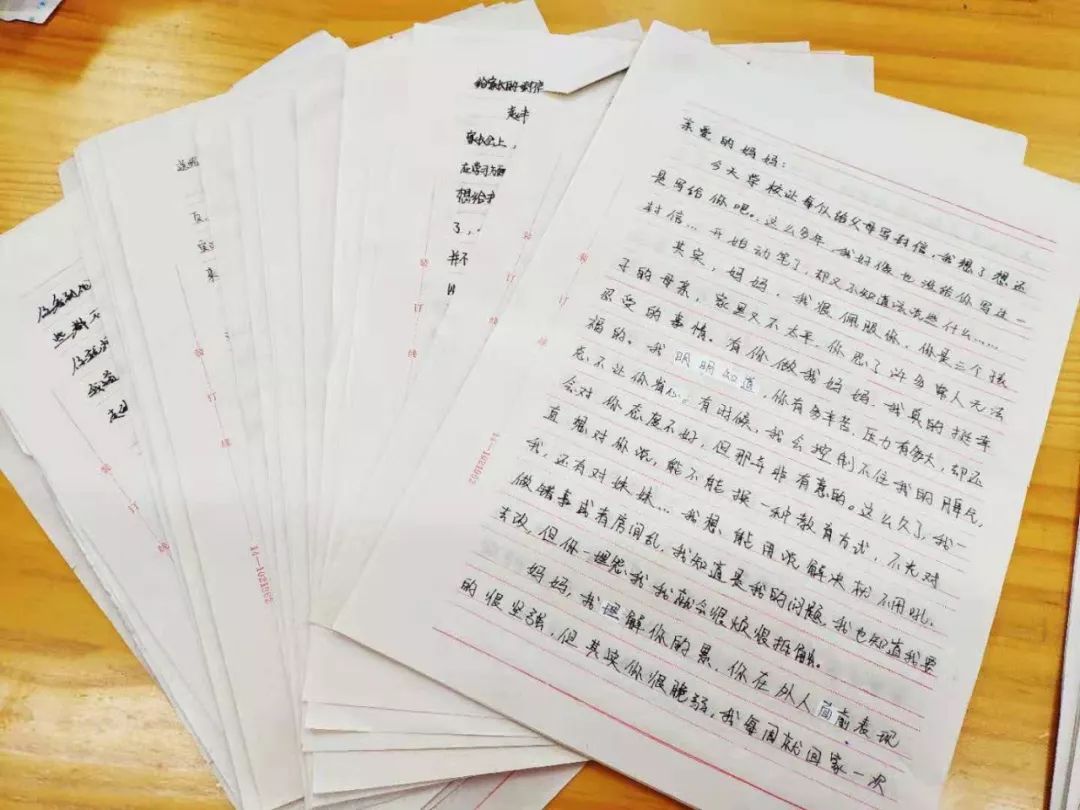 给家长的一封信
家长会上，
在学习方面
想给
了，
装 订 线
装 订 线
装 订 线
亲爱的妈妈：
今天学校让每位给父母写封信，我想了想还
是写给你吧。这么多年，我好像也没给你写过一
封信…开始动笔了，却又不知道该说些什么……
其实，妈妈，我很佩服你，你是三个孩
子的母亲，家里又不太平，你忍了许多常人无法
忍受的事情。有你做我妈妈，我真的挺幸
福的。我明明知道，你有多辛苦，压力有多大，却还
总不让你省心。有时候，我会控制不住我的脾气，
会对你态度不好，但那并非有意的。这么久了，我一
直想对你说，能不能换一种教育方式，不光对
我，还有对妹妹…我想，能用说解决就不用吼。
做错事或有房间乱，我知道是我的问题，我也知道我要
去改，但你一埋怨我我就会很烦很抵触。
妈妈，我理解你的累，你在外人面前表现
的很坚强，但其实你很脆弱，我每周就回家一次